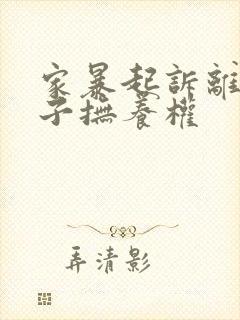 家暴起訴離
子撫養權
弄清影